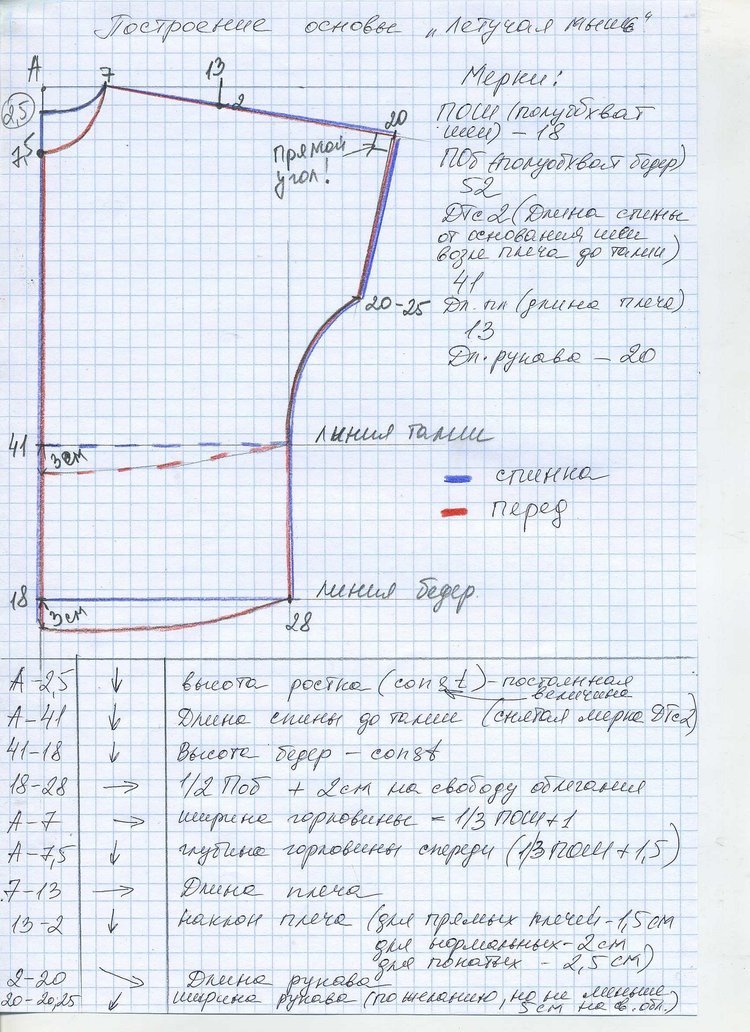 Построение основы „Летучая мышь“
А
7
13
2,5
2
20
7,5
Прямой
угол!
20-25
41
3 см
линия талии
18
3 см
линия бедер
28
Мерки:
ПОШ (полуобхват
шеи) – 18
ПОб (полуобхват бедер)
52
ДТс2 (Длина спины
от основания шеи
возле плеча до талии)
41
Дл. пл (длина плеча)
13
Дл. рукава – 20
спинка
перед
А-2,5 ↓ высота ростка (const) - постоянная
величина
А-41 ↓ Длина спины до талии (снятая мерка ДТс2)
41-18 ↓ Высота бедер – const
18-28 → 1/2 Поб + 2см на свободу облегания
А-7 → ширина горловины = 1/3 ПОШ+1
А-7,5 ↓ глубина горловины спереди (1/3 ПОШ+1,5)
7-13 → Длина плеча
13-2 ↓ наклон плеча (для прямых плечей-1,5см
для нормальных-2см
для покатых - 2,5см)
2-20 ↘ Длина рукава
20-20,25 ↓ ширина рукава (по желанию, но не меньше
5см на св. обл.)